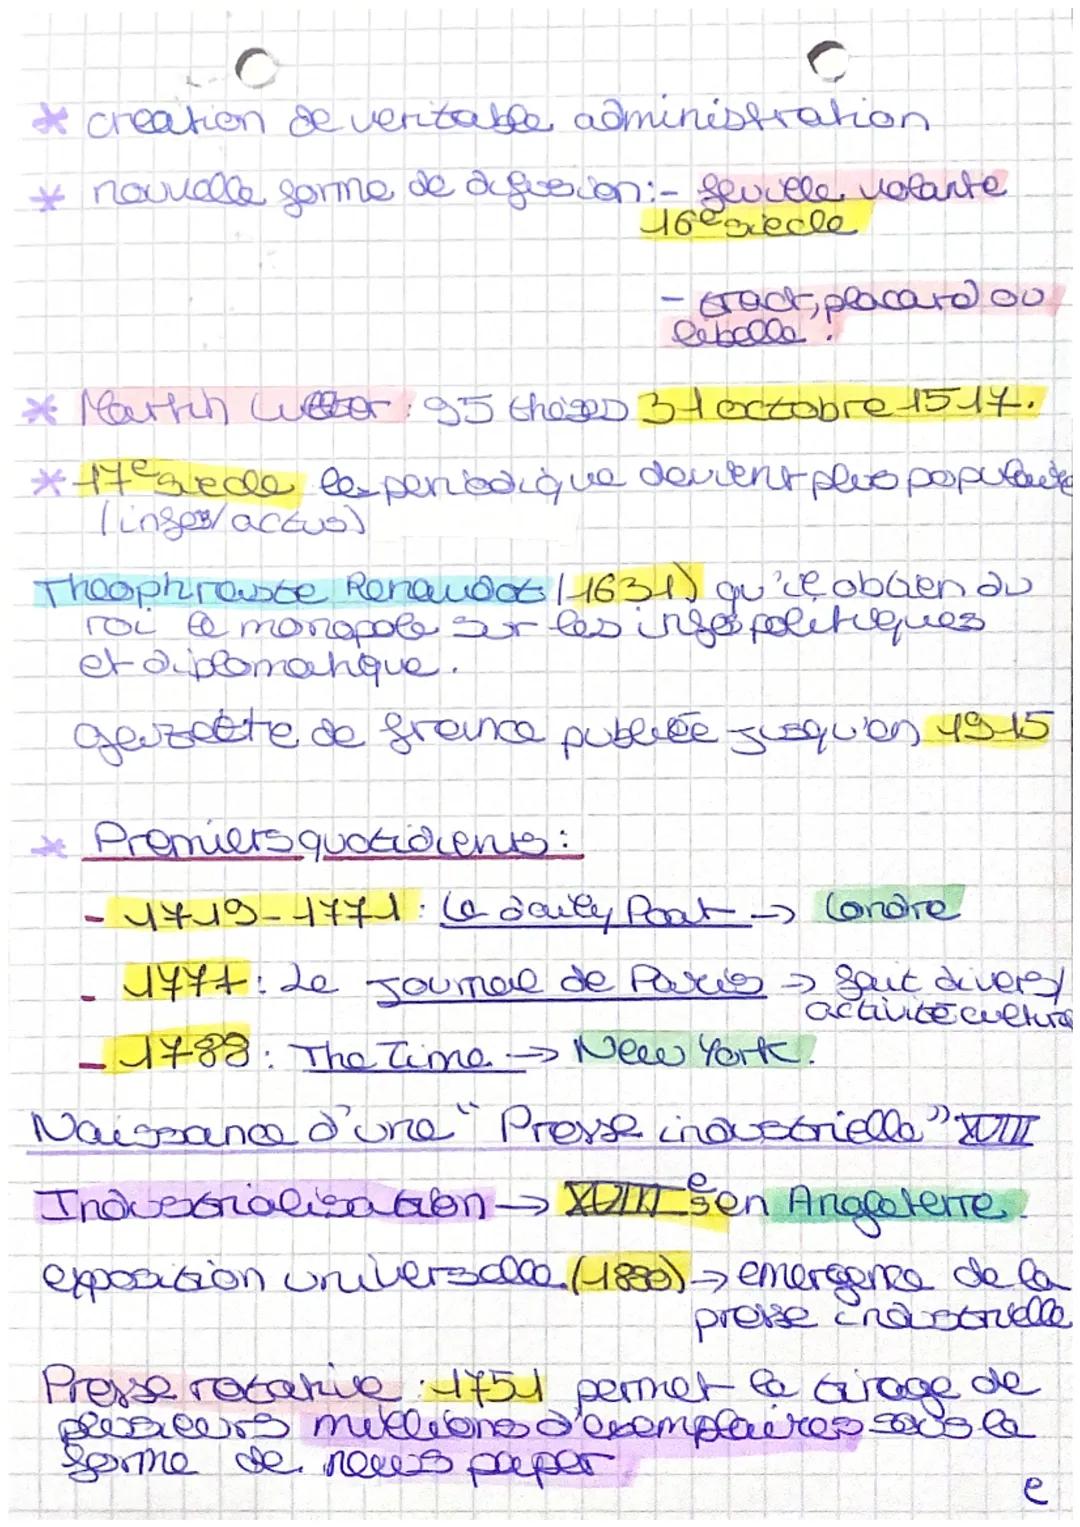 * creation de veritable administration
* nouvelle forme de difusion:- feuille volante
16e siecle
- tract, placard ou
libelle.
* Martin Lutter : 95 theses 31 octobre 1517.
* 17e siecle les periodique devient plus populaire
(infos/actus)
Theophraste Renaudot (1631) qu'il obtien du
roi le monopole sur les infos politiques
et diplomatique.
gazette de france publiée jusqu'en 1915
* Premiers quotidients :
- 1719-1771 : Le daily Post → Londre
- 1777 : Le Journal de Paris → fait divers/
activité cultura
- 1788 : The Time → New York.
Naissance d'une "Presse industrielle" XVIII
Industrialisation → XVIIIe s en Angleterre.
exposition universelle (1889) → emergence de la
presse industrielle
Presse rotative : 1751 permet la tirage de
plusieurs millions d'exemplaires sous la
forme de news paper
e